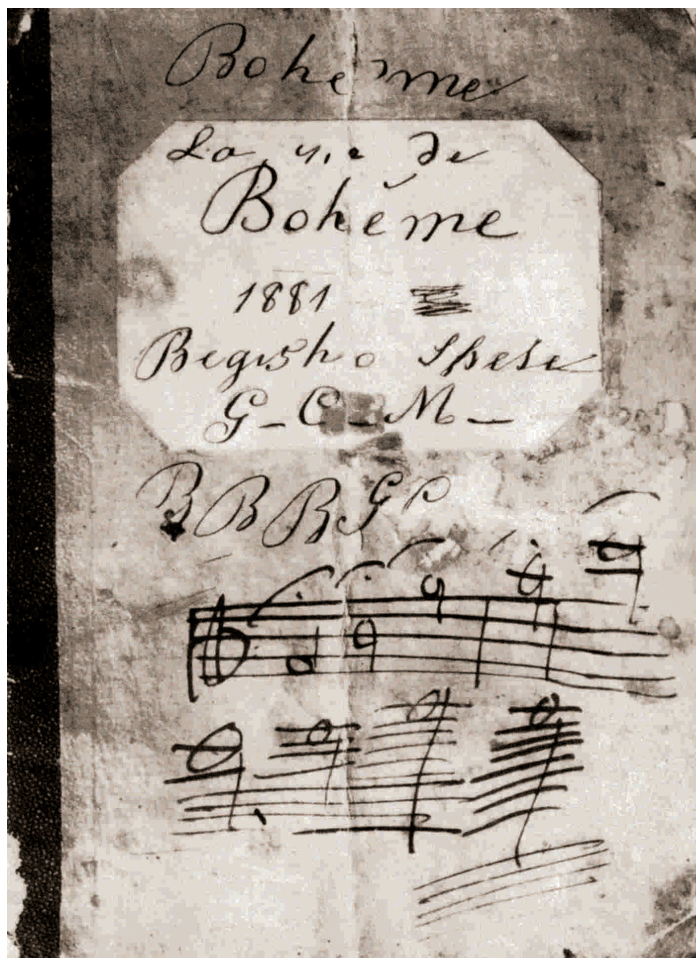 Bohême
La vie de
Bohême
1881
Registro Spese
G - C - M -
B B B G C